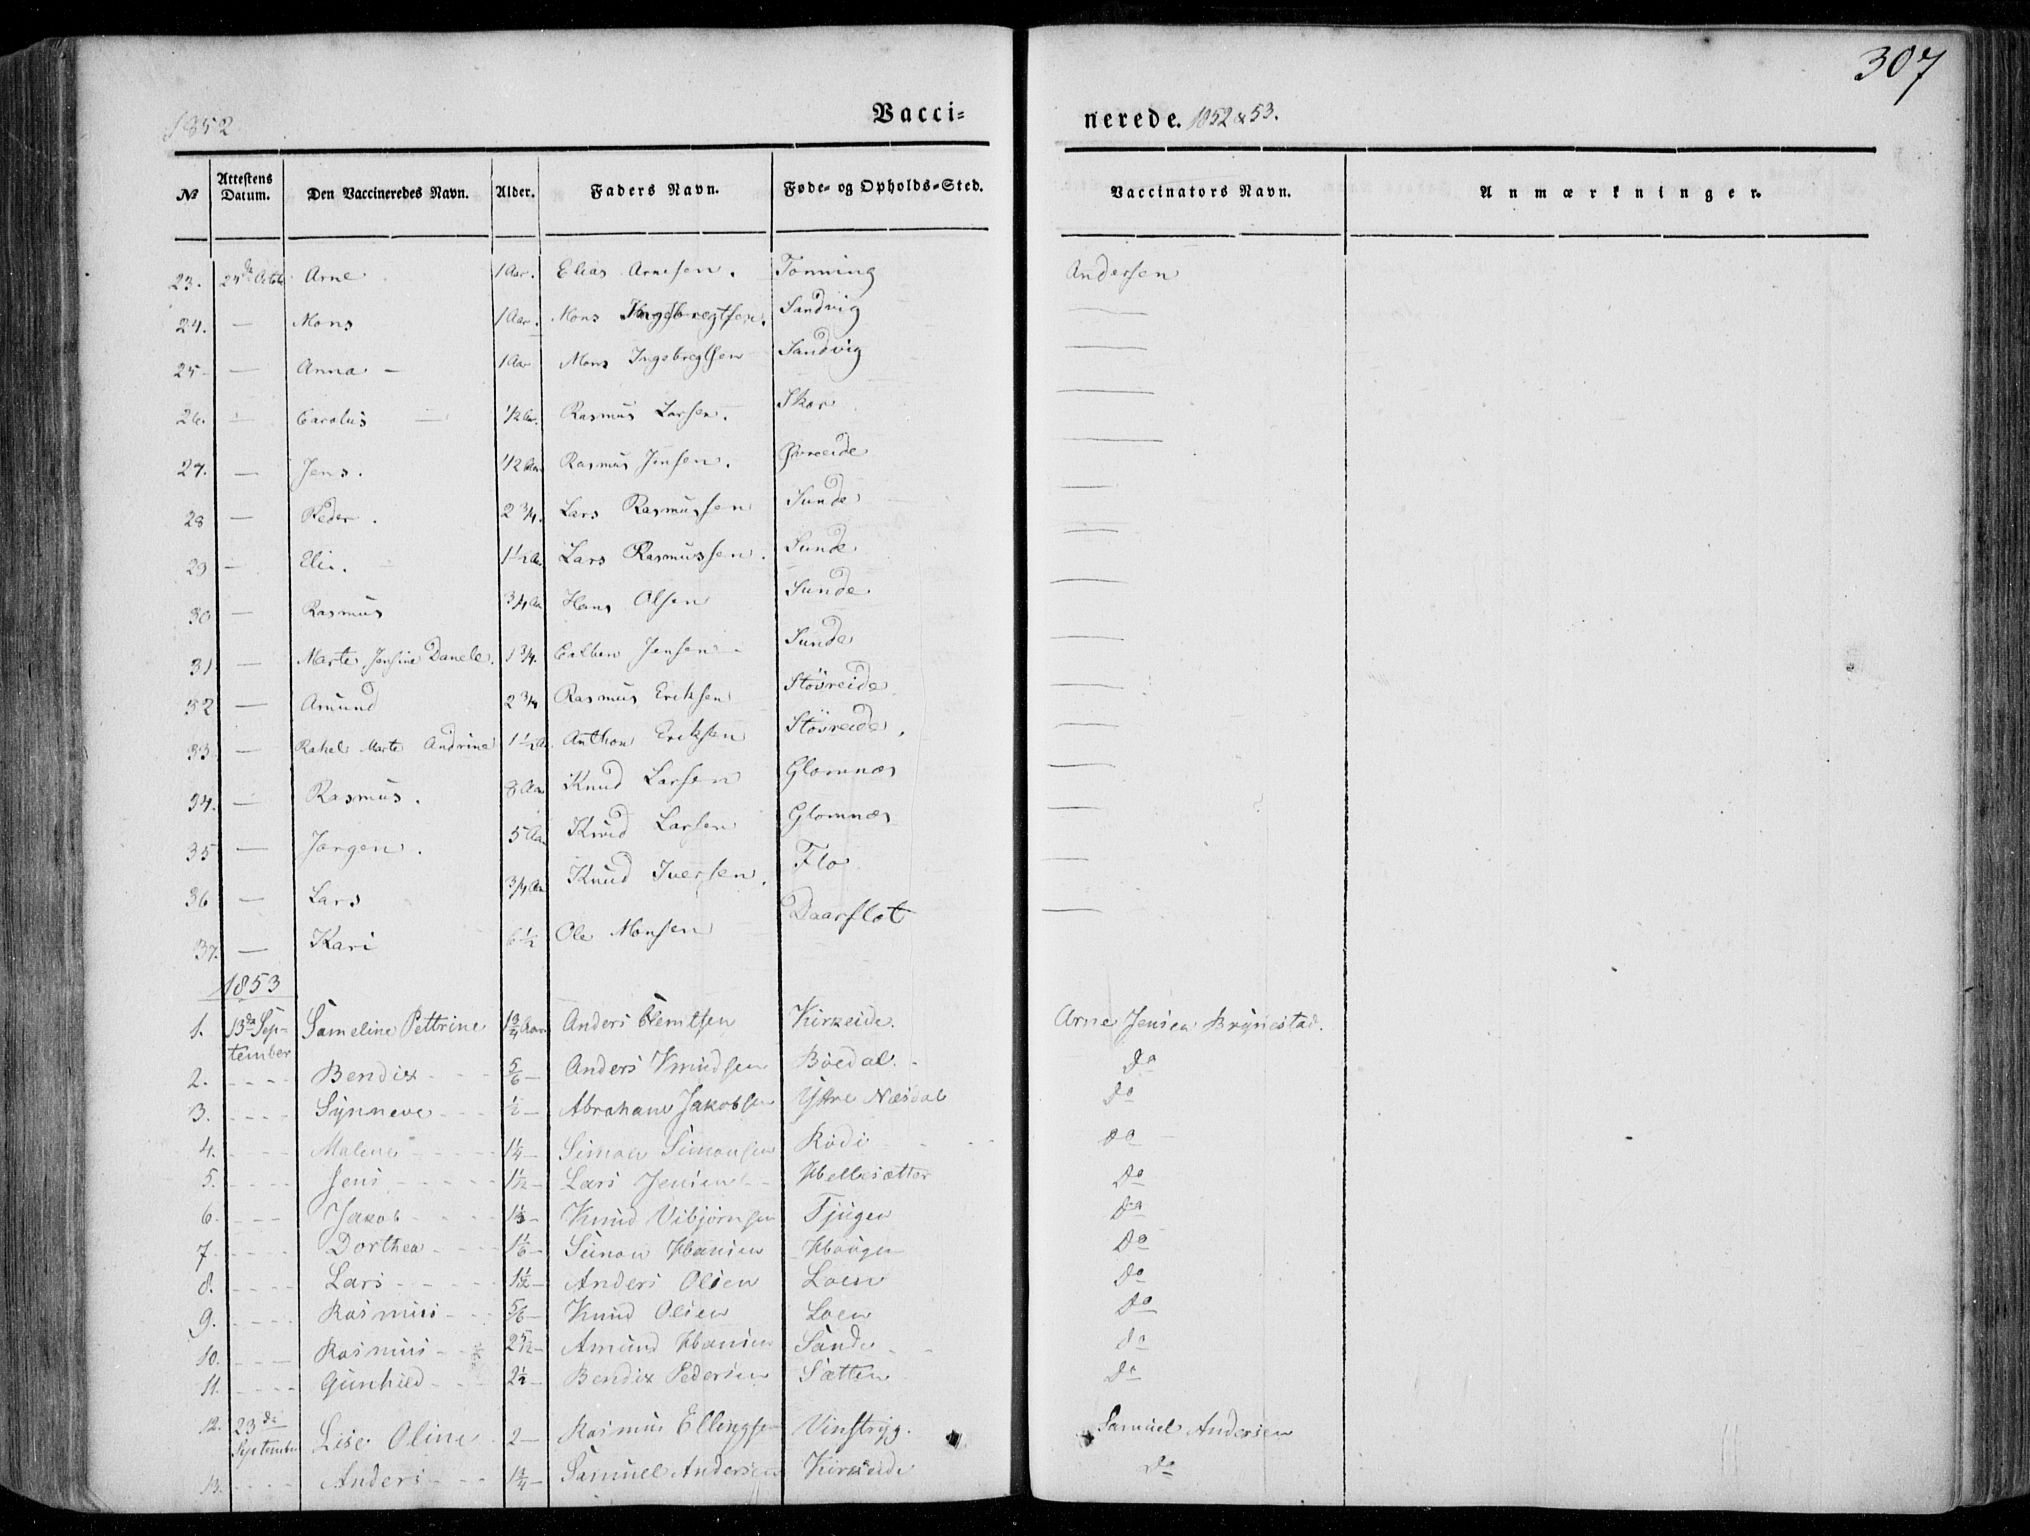 307
1852
Vacci=
nerede. 1852 & 53.
№ Attestens Datum. Den Vaccineredes Navn. Alder. Faders Navn. Føde- og Opholds-Sted. Vaccinators Navn. Anmærkninger.
23. 24de Octob Arne 1 Aar. Elias Arnesen. Tonning Andersen
24. — Mons 1 Aar. Mons Ingebregtsen. Sandvig —
25 — Anna — 1 Aar Mons Ingebregtsen Sandvig —
26. — Carolus — 1/2 Aar. Rasmus Larsen. Skar —
27. — Jens. 1/2 Aar Rasmus Jensen. Øvreeide —
28 — Peder. 2 3/4. Lars Rasmussen Sunde —
29 — Eli. 1 1/2 Aar Lars Rasmussen. Sunde —
30 — Rasmus 3/4 Aar Hans Olsen Sunde —
31 — Marte Jensine Danele. 1 3/4. Jensen Sunde —
32 — Amund 2 3/4 Rasmus Eriksen Støvreide —
33 — Rakel Marte Andrine 1 1/2 A. Anthon Eriksen Støvreide. —
34. — Rasmus. 8 Aar Knud Larsen Glomnæs —
35 — Jørgen. 5 Aar Knud Larsen Glomnæs —
36 — Lars 3/4 Aar Knud Iversen. Flo —
37. — Kari 6 1/2 Ole Monsen Daarflot —
1853
1. 13de Sep-
tember Sameline Pettrine 1 3/4 Aar Anders Clemtsen Kirkeide. Arne Jensen Brynestad.
2. - - - - Bendix - - - 5/6 — Anders Knudsen Bøedal. do
3. - - - - Synneve - - - 1/2 — Abraham Jakobsen Yttre Næsdal do
4. - - - - Malene - - - - 1 1/4 — Simon Simonsen Rødi do
5. - - - - Jens - - - - - 1 1/12 — Lars Jensen - - Hellesætter do
6. - - - - Jakob - - - - 1 1/3 — Knud Vibjørnsen Tjugen do
7. - - - - Dorthea - - - 1 1/6 — Simon Hansen Haugen do
8. - - - - Lars - - - - 1 1/12 — Anders Olsen Loen do
9. - - - - Rasmus - - - 5/6 — Knud Olsen Loen do
10. - - - Rasmus - - - 2 5/12 — Amund Hansen Sande do
11. - - - - Gunhild - - - 2 1/2 — Bendix Pedersen Sætten do
12. 23de
September Lise Oline 2 — Rasmus Ellingsen Vinstryg. Samuel Andersen
13. - - - - Anders - - - 1 3/4 — Samuel Andersen Kirkeide do